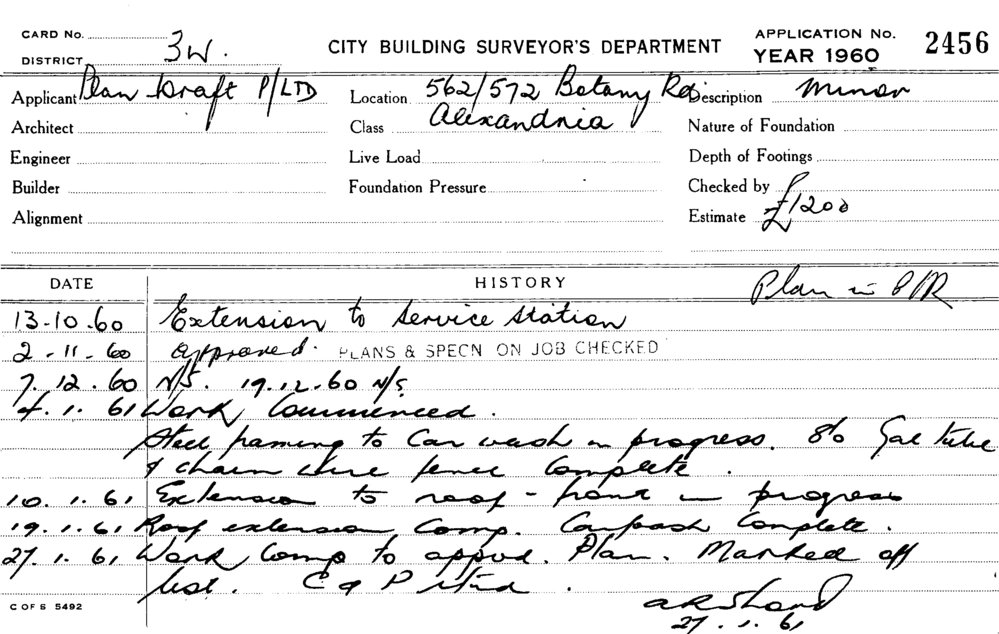 CARD No.
DISTRICT 3W.
CITY BUILDING SURVEYOR'S DEPARTMENT
APPLICATION No. 2456
YEAR 1960
Applicant Plan Draft P/LTD
Location 562/572 Botany Rd
Description Minor
Architect
Class Alexandria
Nature of Foundation
Engineer
Live Load
Depth of Footings
Builder
Foundation Pressure
Checked by
Alignment
Estimate £1200
DATE HISTORY Plan in P/R
13-10.60 Extension to Service Station
2-11-60 Approved. PLANS & SPECN ON JOB CHECKED
7.12.60 N/S. 19.12.60 N/S
4.1.61 Work Commenced.
Steel framing to Car wash in progress. 8'0 Gal tube
& chain wire fence Complete.
10.1.61 Extension to roof - front in progress
19.1.61 Roof extension Comp. Carwash Complete.
27.1.61 Work Comp to approd. Plan. Marked off
list. C & P
27.1.61
C OF S 5492